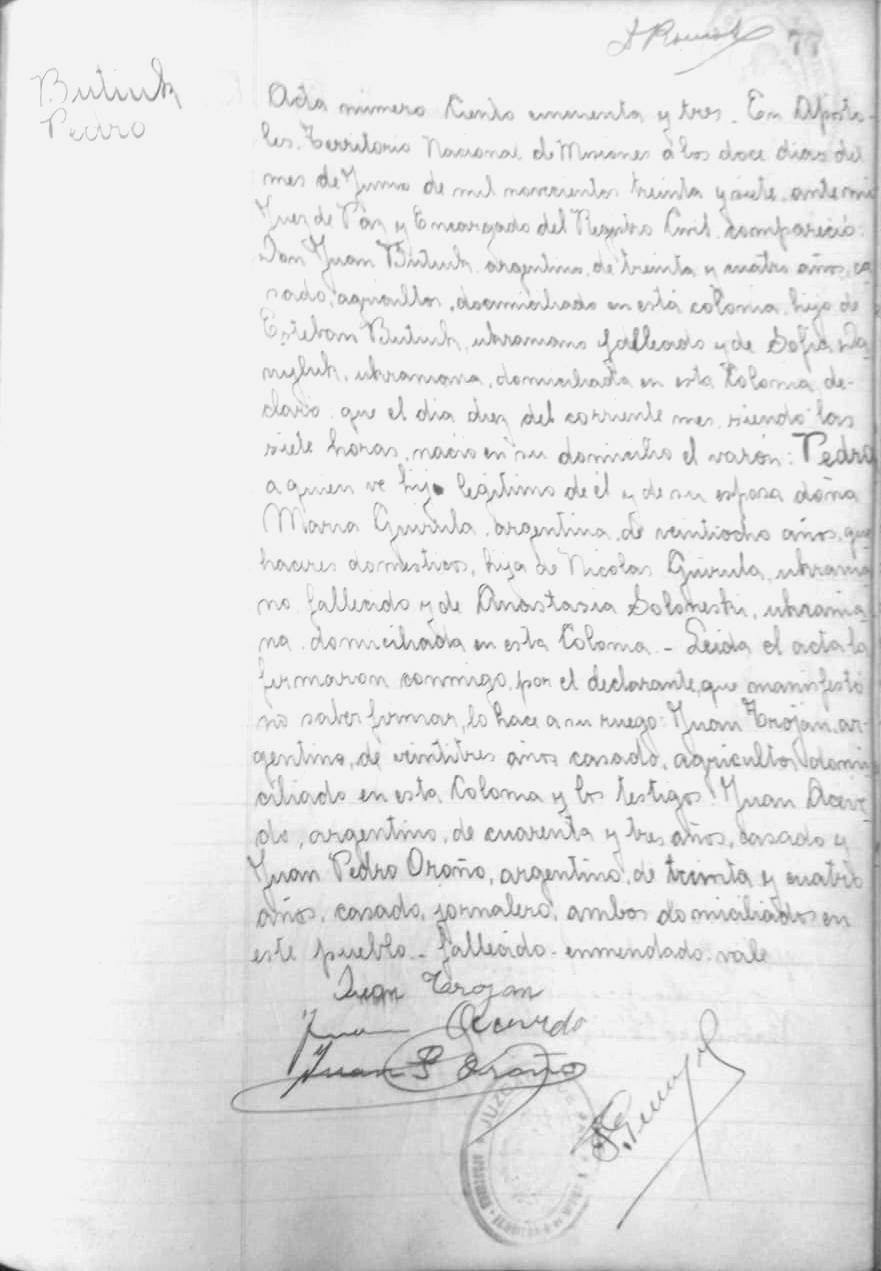 77
Butiuk
Pedro
Acta número Ciento cincuenta y tres. En Apósto-
les, Territorio Nacional de Misiones á los doce dias del
mes de Junio de mil novecientos treinta y siete, ante mi
Juez de Páz y Encargado del Registro Civil, compareció:
Don Juan Butiuk, argentino, de treinta y cuatro años, ca
sado, agricultor, domiciliado en está colonia, hijo de
Esteban Butiuk, ukraniano fallecido y de Sofia
ukraniana, domiciliada en esta Colonia, de-
claró: que el dia diez del corriente mes, siendo las
siete horas, nació en su domicilio el varón: Pedro
a quien ve hijo legítimo de él y de su esposa doña
Maria argentina, de veintiocho años, que
haceres domésticos, hija de Nicolas ukrania
no fallecido y de Anastasia ukrania-
na, domiciliada en esta Colonia.- Leida el acta la
firmaron conmigo, por el declarante, que manifestó
no saber firmar, lo hace a su ruego: Juan Troján, ar-
gentino, de veintitres años casado, agricultor, domi
ciliado en esta Colonia y los testigos: Juan Aceve-
do, argentino, de cuarenta y tres años, casado y
Juan Pedro Oroño, argentino, de treinta y cuatro
años, casado, jornalero, ambos domiciliados en
este pueblo.- fallecido - enmendado - vale
Juan Trojan
Juan Acevedo
Juan P Oroño
JUZG